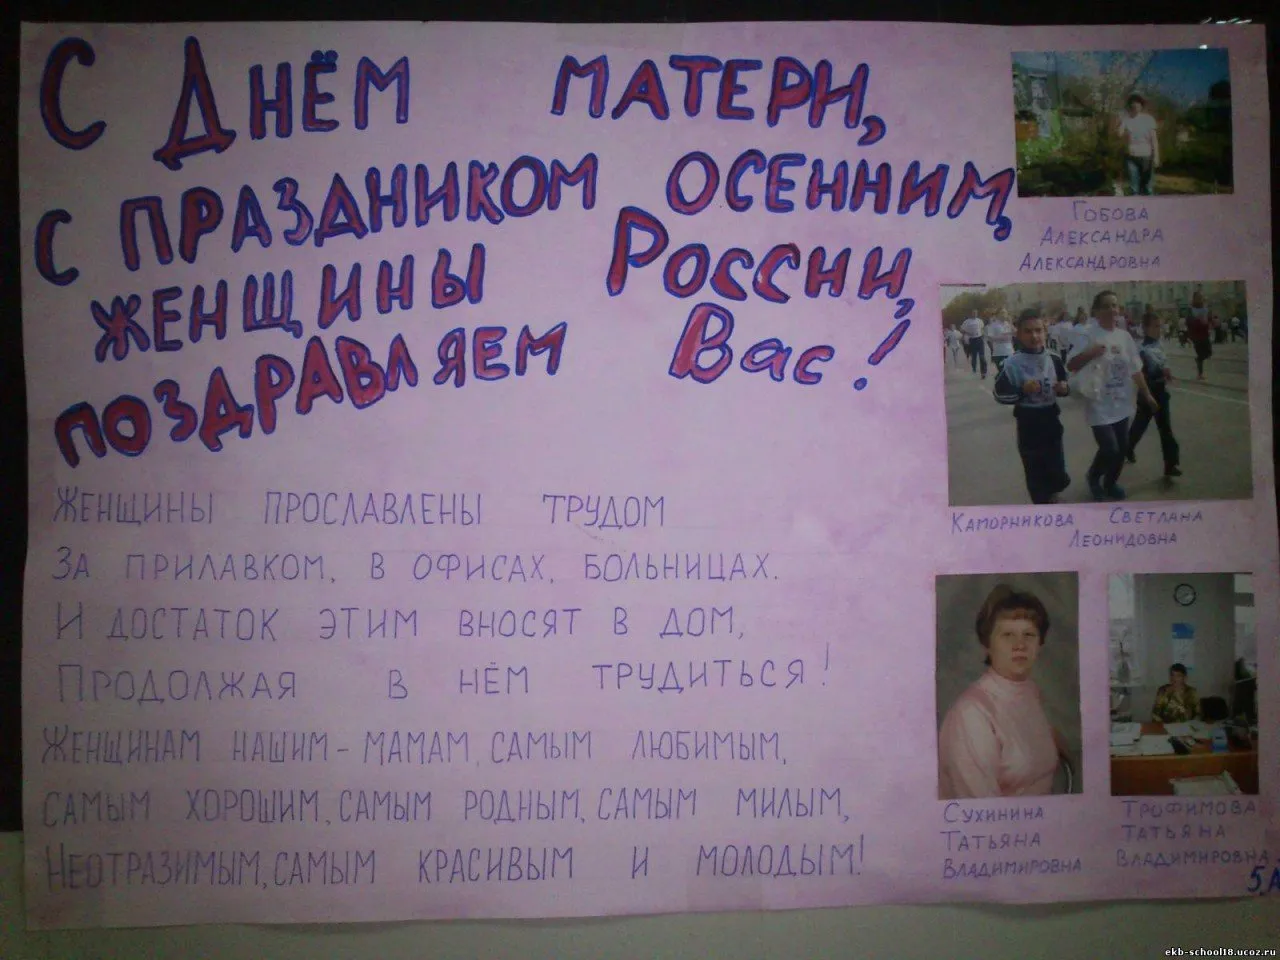 С Днём матери,
с праздником осенним,
женщины России,
поздравляем Вас!
Женщины прославлены трудом
За прилавком, в офисах, больницах.
И достаток этим вносят в дом,
Продолжая в нём трудиться!
Женщинам нашим - мамам, самым любимым,
самым хорошим, самым родным, самым милым,
Неотразимым, самым красивым и молодым!
Гобова
Александра
Александровна
Каморникова Светлана
Леонидовна
Сухинина
Татьяна
Владимировна
Трофимова
Татьяна
Владимировна
5 А
ekb-school18.ucoz.ru